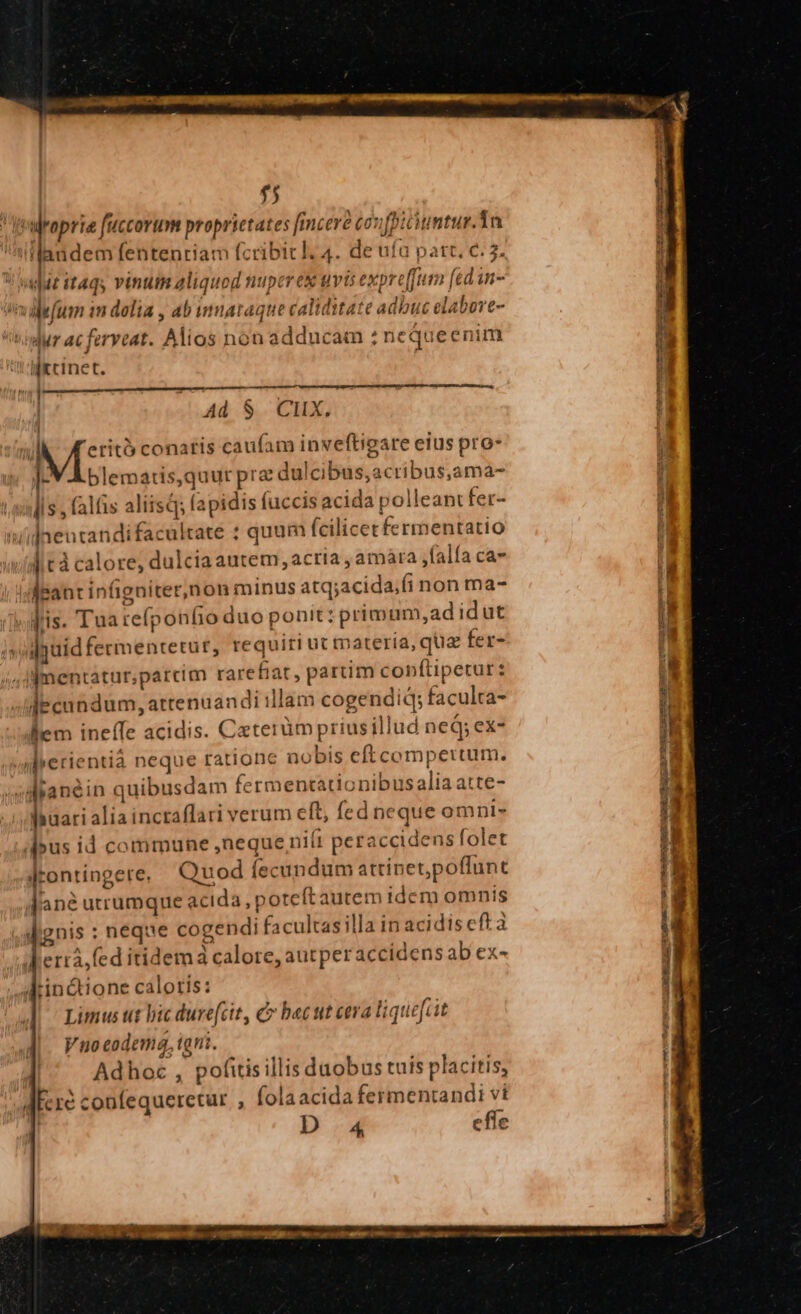 55
propriæ ſuccorum proprietates ſincerè conſpiciuntur. In
eandem ſententiam ſcribit l. 4. de uſu part. c. 3.
itaq; vinum aliquod nuper ex uvis expreſſum ſed in-
fuſum in dolia, ab innataque caliditate adhuc elabore-
tur ac ferveat. Alios non adducam : neque enim
attinet.
Ad § CIIX.
Meritò conaris cauſam inveſtigare eius pro-
blematis, quur præ dulcibus, acribus, ama-
ris, ſalſis aliisq; ſapidis ſuccis acida polleant fer-
mentandi facultate : quum ſcilicet fermentatio
à calore, dulcia autem, acria, amara, ſalſa ca-
leant inſigniter, non minus atq; acida, ſi non ma-
gis. Tua reſponſio duo ponit: primum, ad id ut
quid fermentetur, requiri ut materia, quæ fer-
mentatur, partim rarefiat, partim conſtipetur:
ſecundum, attenuandi illam cogendiq; faculta-
tem ineſſe acidis. Cæterùm prius illud neq; ex-
perientiâ neque ratione nobis eſt compertum.
ſanè in quibusdam fermentationibus alia atte-
nuari alia incraſſari verum eſt, ſed neque omni-
bus id commune, neque niſi per accidens ſolet
contingere. Quod ſecundum attinet, poſſunt
ſanè utrumque acida, poteſt autem idem omnis
ignis : neque cogendi facultas illa in acidis eſt à
terrâ, ſed itidem à calore, aut per accidens ab ex-
tinctione caloris:
Limus ut hic dureſcit, & hæc ut cera liqueſcit
Vno eodemq, igni.
Ad hoc, poſitis illis duobus tuis placitis,
ferè conſequeretur, ſola acida fermentandi vi
D 4 eſſe